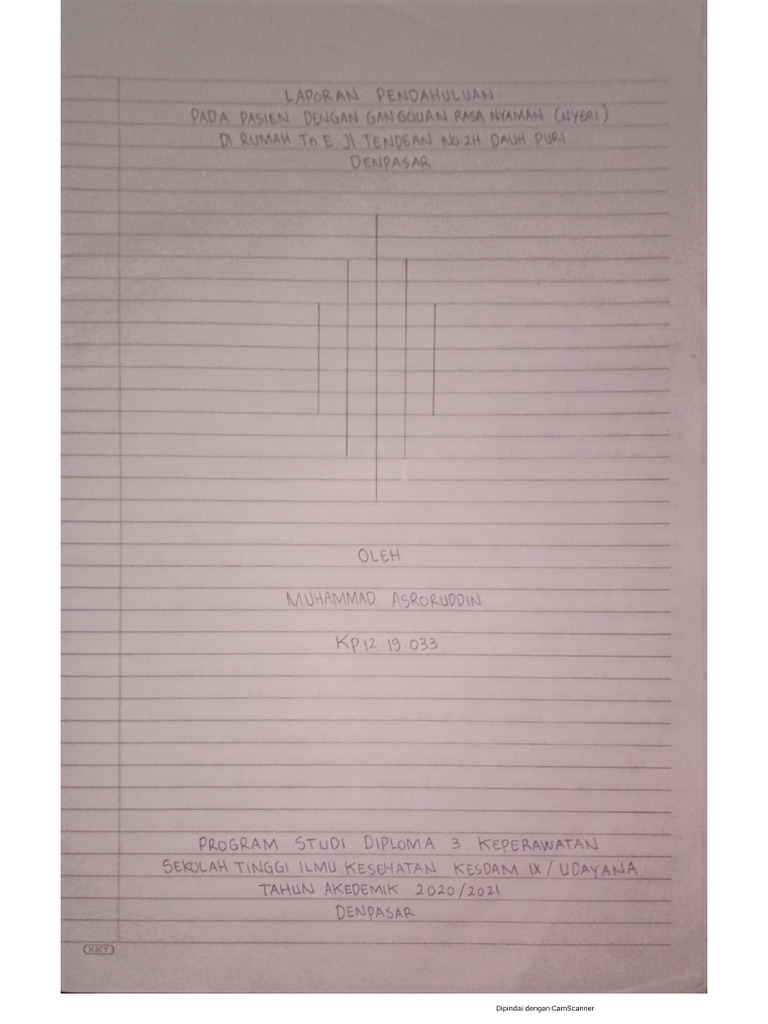 LAPORAN PENDAHULUAN
PADA PASIEN DENGAN GANGGUAN RASA NYAMAN (NYERI)
DI RUMAH Tn E Jl TENDEAN NO.2H DAUH PURI
DENPASAR
OLEH
MUHAMMAD ASRORUDDIN
KP.12.19 033
PROGRAM STUDI DIPLOMA 3 KEPERAWATAN
SEKOLAH TINGGI ILMU KESEHATAN KESDAM IX / UDAYANA
TAHUN AKEDEMIK 2020/2021
DENPASAR
KKY
Dipindai dengan CamScanner